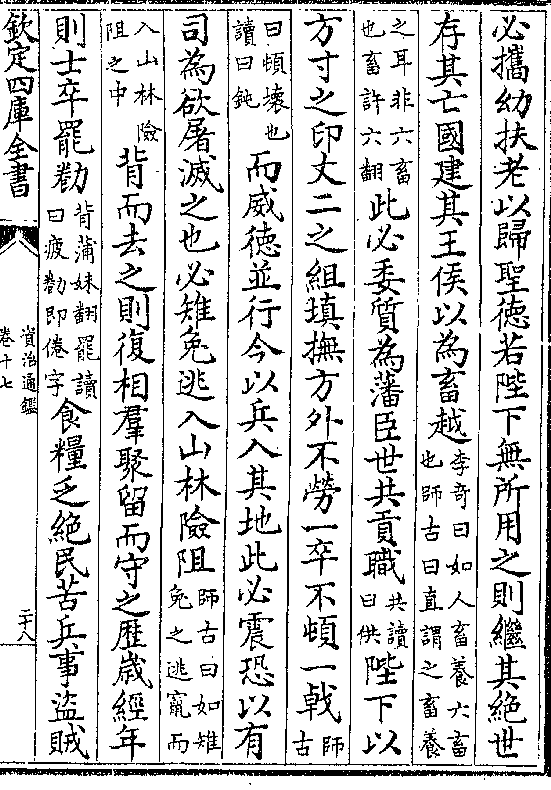 必攜幼扶老以歸聖徳若陛下無所用之則繼其絶世
存其亡國建其王侯以為畜越李奇曰如人畜養六畜也師古曰直謂之畜養
之耳非六畜也畜許六翻此必委質為藩臣世共貢職共讀曰供陛下以
方寸之印丈二之組填撫方外不勞一卒不頓一戟師古
曰頓壞也讀曰鈍而威徳並行今以兵入其地此必震恐以有
司為欲屠滅之也必雉兔逃入山林險阻師古曰如雉兔之逃竄而
入山林險阻之中背而去之則復相羣聚留而守之歴歳經年
則士卒罷勌背蒲妹翻罷讀曰疲勌即倦字食糧乏絶民苦兵事盜賊
欽定四庫全書
資治通鑑
卷十七
二十八